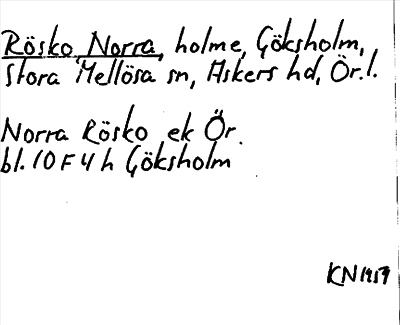 Rösko Norra, holme, Göksholm,
Stora Mellösa sn, Askers hd, Ör.l.
Norra Rösko ek Ör.
bl. 10 F 4 h Göksholm
KN 1959